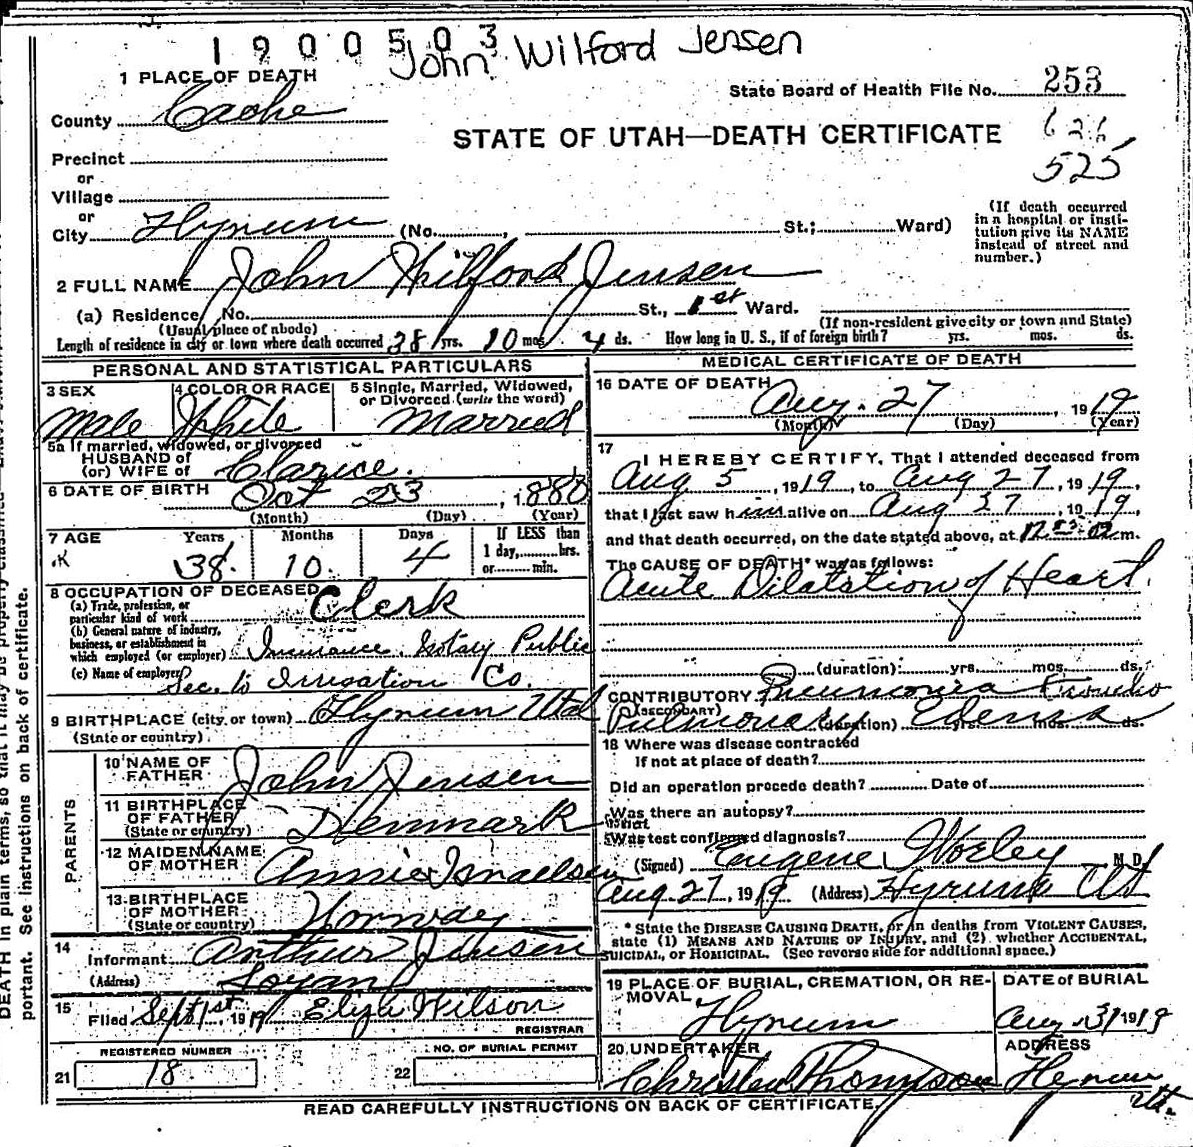 1900503
John Wilford Jensen
1 PLACE OF DEATH
State Board of Health File No. 253
County Cache
STATE OF UTAH—DEATH CERTIFICATE
626
525
Precinct
or
Village
or
City Hyrum (No. , St.; Ward)
(If death occurred in a hospital or insti-
tution give its NAME
instead of street and
number.)
2 FULL NAME John Wilford Jensen
(a) Residence No. St., 1st Ward.
(Usual place of abode)
(If non-resident give city or town and State)
Length of residence in city or town where death occurred 38 yrs. 10 mos. 4 ds. How long in U. S., if of foreign birth? yrs. mos. ds.
PERSONAL AND STATISTICAL PARTICULARS
3 SEX
Male
4 COLOR OR RACE
White
5 Single, Married, Widowed,
or Divorced (write the word)
Married
5a If married, widowed, or divorced
HUSBAND of
(or) WIFE of Clarice
6 DATE OF BIRTH Oct 23, 1880
(Month) (Day) (Year)
7 AGE Years Months Days If LESS than
38 10 4 1 day, hrs.
or min.
8 OCCUPATION OF DECEASED
(a) Trade, profession, or
particular kind of work Clerk
(b) General nature of industry,
business, or establishment in
which employed (or employer) Insurance. Notary Public
(c) Name of employer Sec. to Irrigation Co.
9 BIRTHPLACE (city or town) Hyrum Utah
(State or country)
PARENTS
10 NAME OF
FATHER John Jensen
11 BIRTHPLACE
OF FATHER
(State or country) Denmark
12 MAIDEN NAME
OF MOTHER Annie Israelsen
13 BIRTHPLACE
OF MOTHER
(State or country) Norway
14
Informant Arthur Jensen
(Address) Logan
15
Filed Sept 1st, 1919 Wilson
REGISTRAR
REGISTERED NUMBER
21 18
NO. OF BURIAL PERMIT
22
MEDICAL CERTIFICATE OF DEATH
16 DATE OF DEATH
Aug. 27, 1919
(Month) (Day) (Year)
17
I HEREBY CERTIFY, That I attended deceased from
Aug 5, 1919, to Aug 27, 1919,
that I last saw him alive on Aug 27, 1919,
and that death occurred, on the date stated above, at 12 m.
The CAUSE OF DEATH* was as follows:
Acute Dilatation of Heart.
(duration) yrs. mos. ds.
CONTRIBUTORY Pneumonia Broncho
(SECONDARY)
Pulmonary (duration) Edema yrs. mos. ds.
18 Where was disease contracted
If not at place of death?
Did an operation precede death? Date of
Was there an autopsy?
What test confirmed diagnosis?
(Signed) Eugene Worley M D
Aug. 27, 1919 (Address) Hyrum Ut
* State the DISEASE CAUSING DEATH, or in deaths from VIOLENT CAUSES,
state (1) MEANS AND NATURE OF INJURY, and (2) whether ACCIDENTAL,
SUICIDAL, or HOMICIDAL. (See reverse side for additional space.)
19 PLACE OF BURIAL, CREMATION, OR RE-
MOVAL
Hyrum
DATE of BURIAL
Aug. 31 1919
20 UNDERTAKER
Christen Thompson
ADDRESS
Hyrum
Ut.
READ CAREFULLY INSTRUCTIONS ON BACK OF CERTIFICATE.
DEATH in plain terms, so that it may be properly classified.
portant. See instructions on back of certificate.